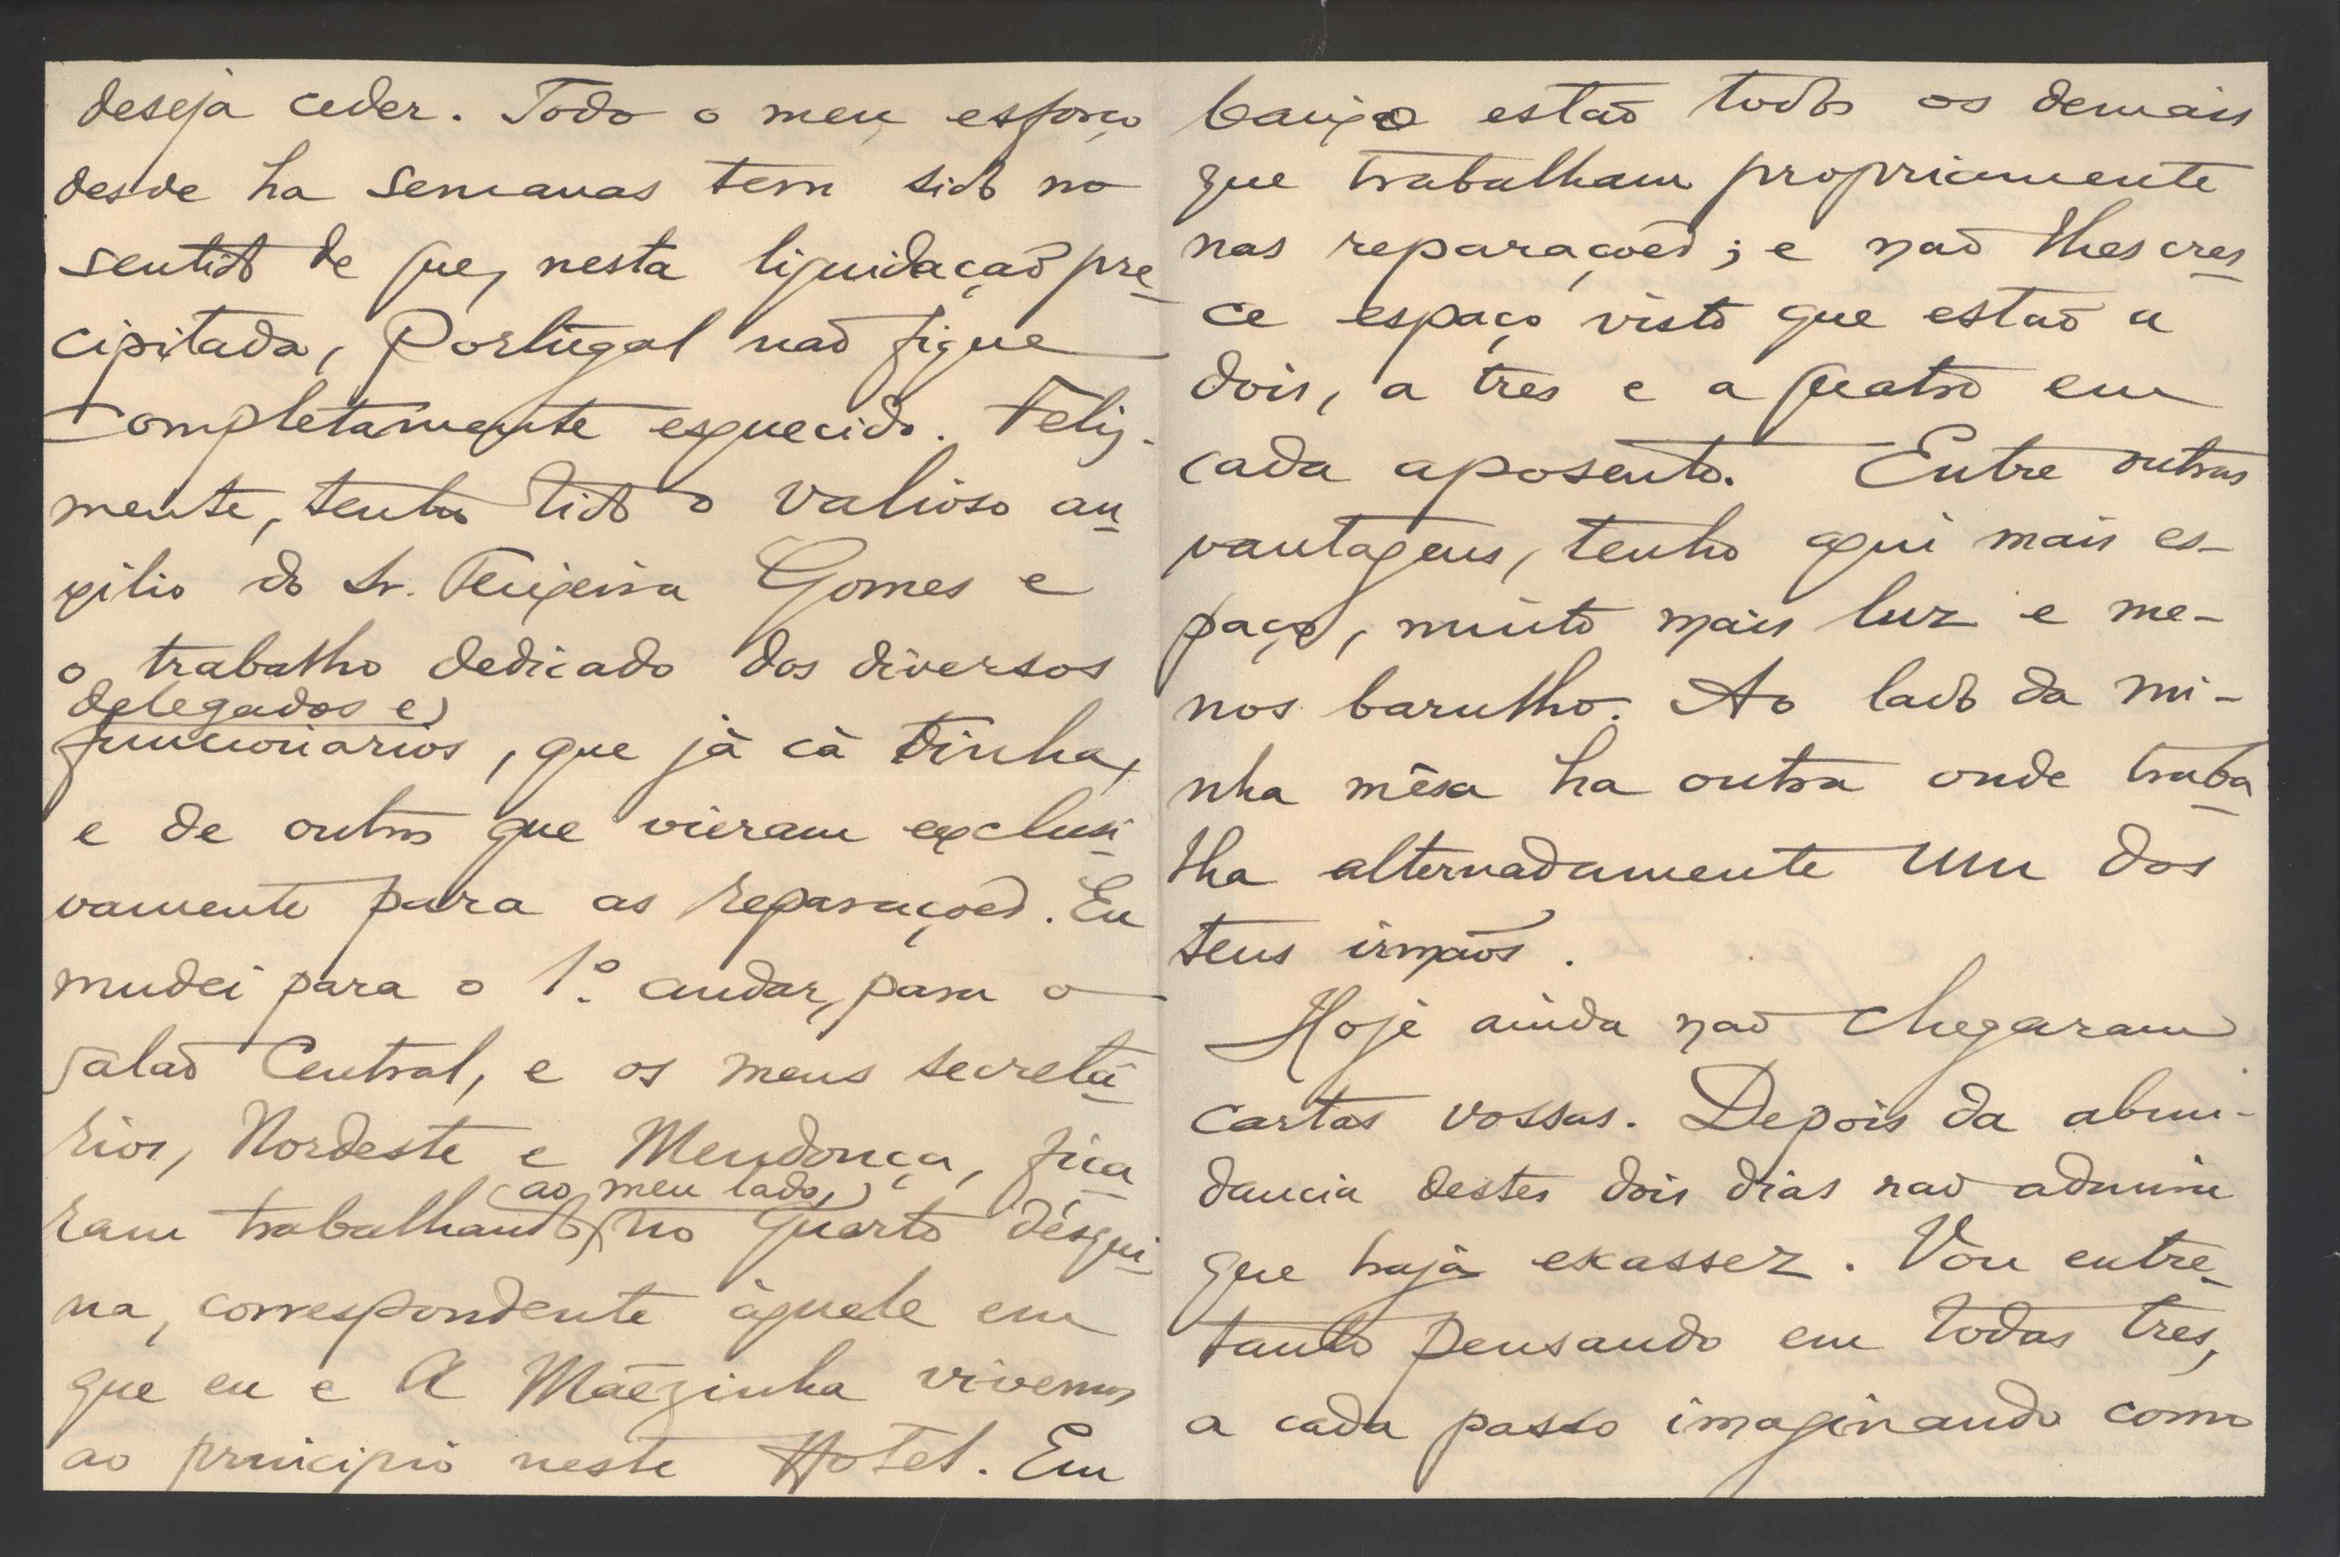 deseja ceder. Todo o meu esforço
desde ha semanas tem sido no
sentido de que, nesta liquidação pre
cipitada, Portugal não fique
completamente esquecido. Feliz-
mente, tenho tido o valioso au
xilio do Sr. Teixeira Gomes e
o trabalho dedicado dos diversos
delegados e
funcionarios, que já cá tinha,
e de outros que vieram exclusi
vamente para as reparações. Eu
mudei para o 1º andar, para o
salão Central, e os meus secretá
rios, Nordeste e Mendonça, fica
ao meu lado,
ram trabalhando no quarto désqui
na, correspondente àquele em
que eu e A Mãezinha vivemos
ao principio neste Hotel. Em
baixo estão todos os demais
que trabalham propriamente
nas reparações; e não lhes cres
ce espaço visto que estão a
dois, a tres e a quatro em
cada aposento. Entre outras
vantagens, tenho aqui mais es-
paço, muito mais luz e me-
nos barulho. Ao lado da mi-
nha mêsa ha outra onde traba
lha alternadamente um dos
teus irmãos.
Hoje ainda não chegaram
cartas vossas. Depois da abun-
dancia destes dois dias não admira
que haja escassez. Vou entre
tanto pensando em todas tres,
a cada passo imaginando como